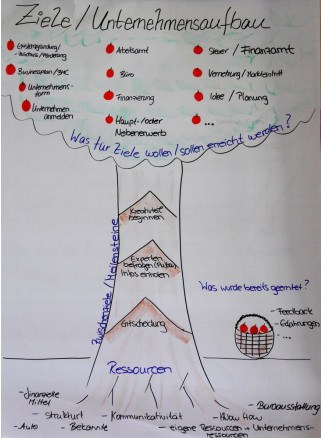 Ziele / Unternehmensaufbau
Existenzgründung/
Businessplan / BMC
Unternehmens-
form
Unternehmen
anmelden
Arbeitsamt
Büro
Finanzierung
Haupt-/oder
Nebenerwerb
Steuer / Finanzamt
Vernetzung / Markteintritt
Idee / Planung
...
Was für Ziele wollen/sollen erreicht werden?
Zwischenziele / Meilensteine
Kreativität
beginnen
Experten
befragen
Infos einholen
Entscheidung
Was wurde bereits geerntet?
- Feedback
- Erfahrungen
- ...
Ressourcen
- finanzielle
Mittel
- Struktur
- Kommunikativität
- Know How
- Büroausstattung
- Auto
- Bekannte
- eigene Ressourcen + Unternehmens-
ressourcen